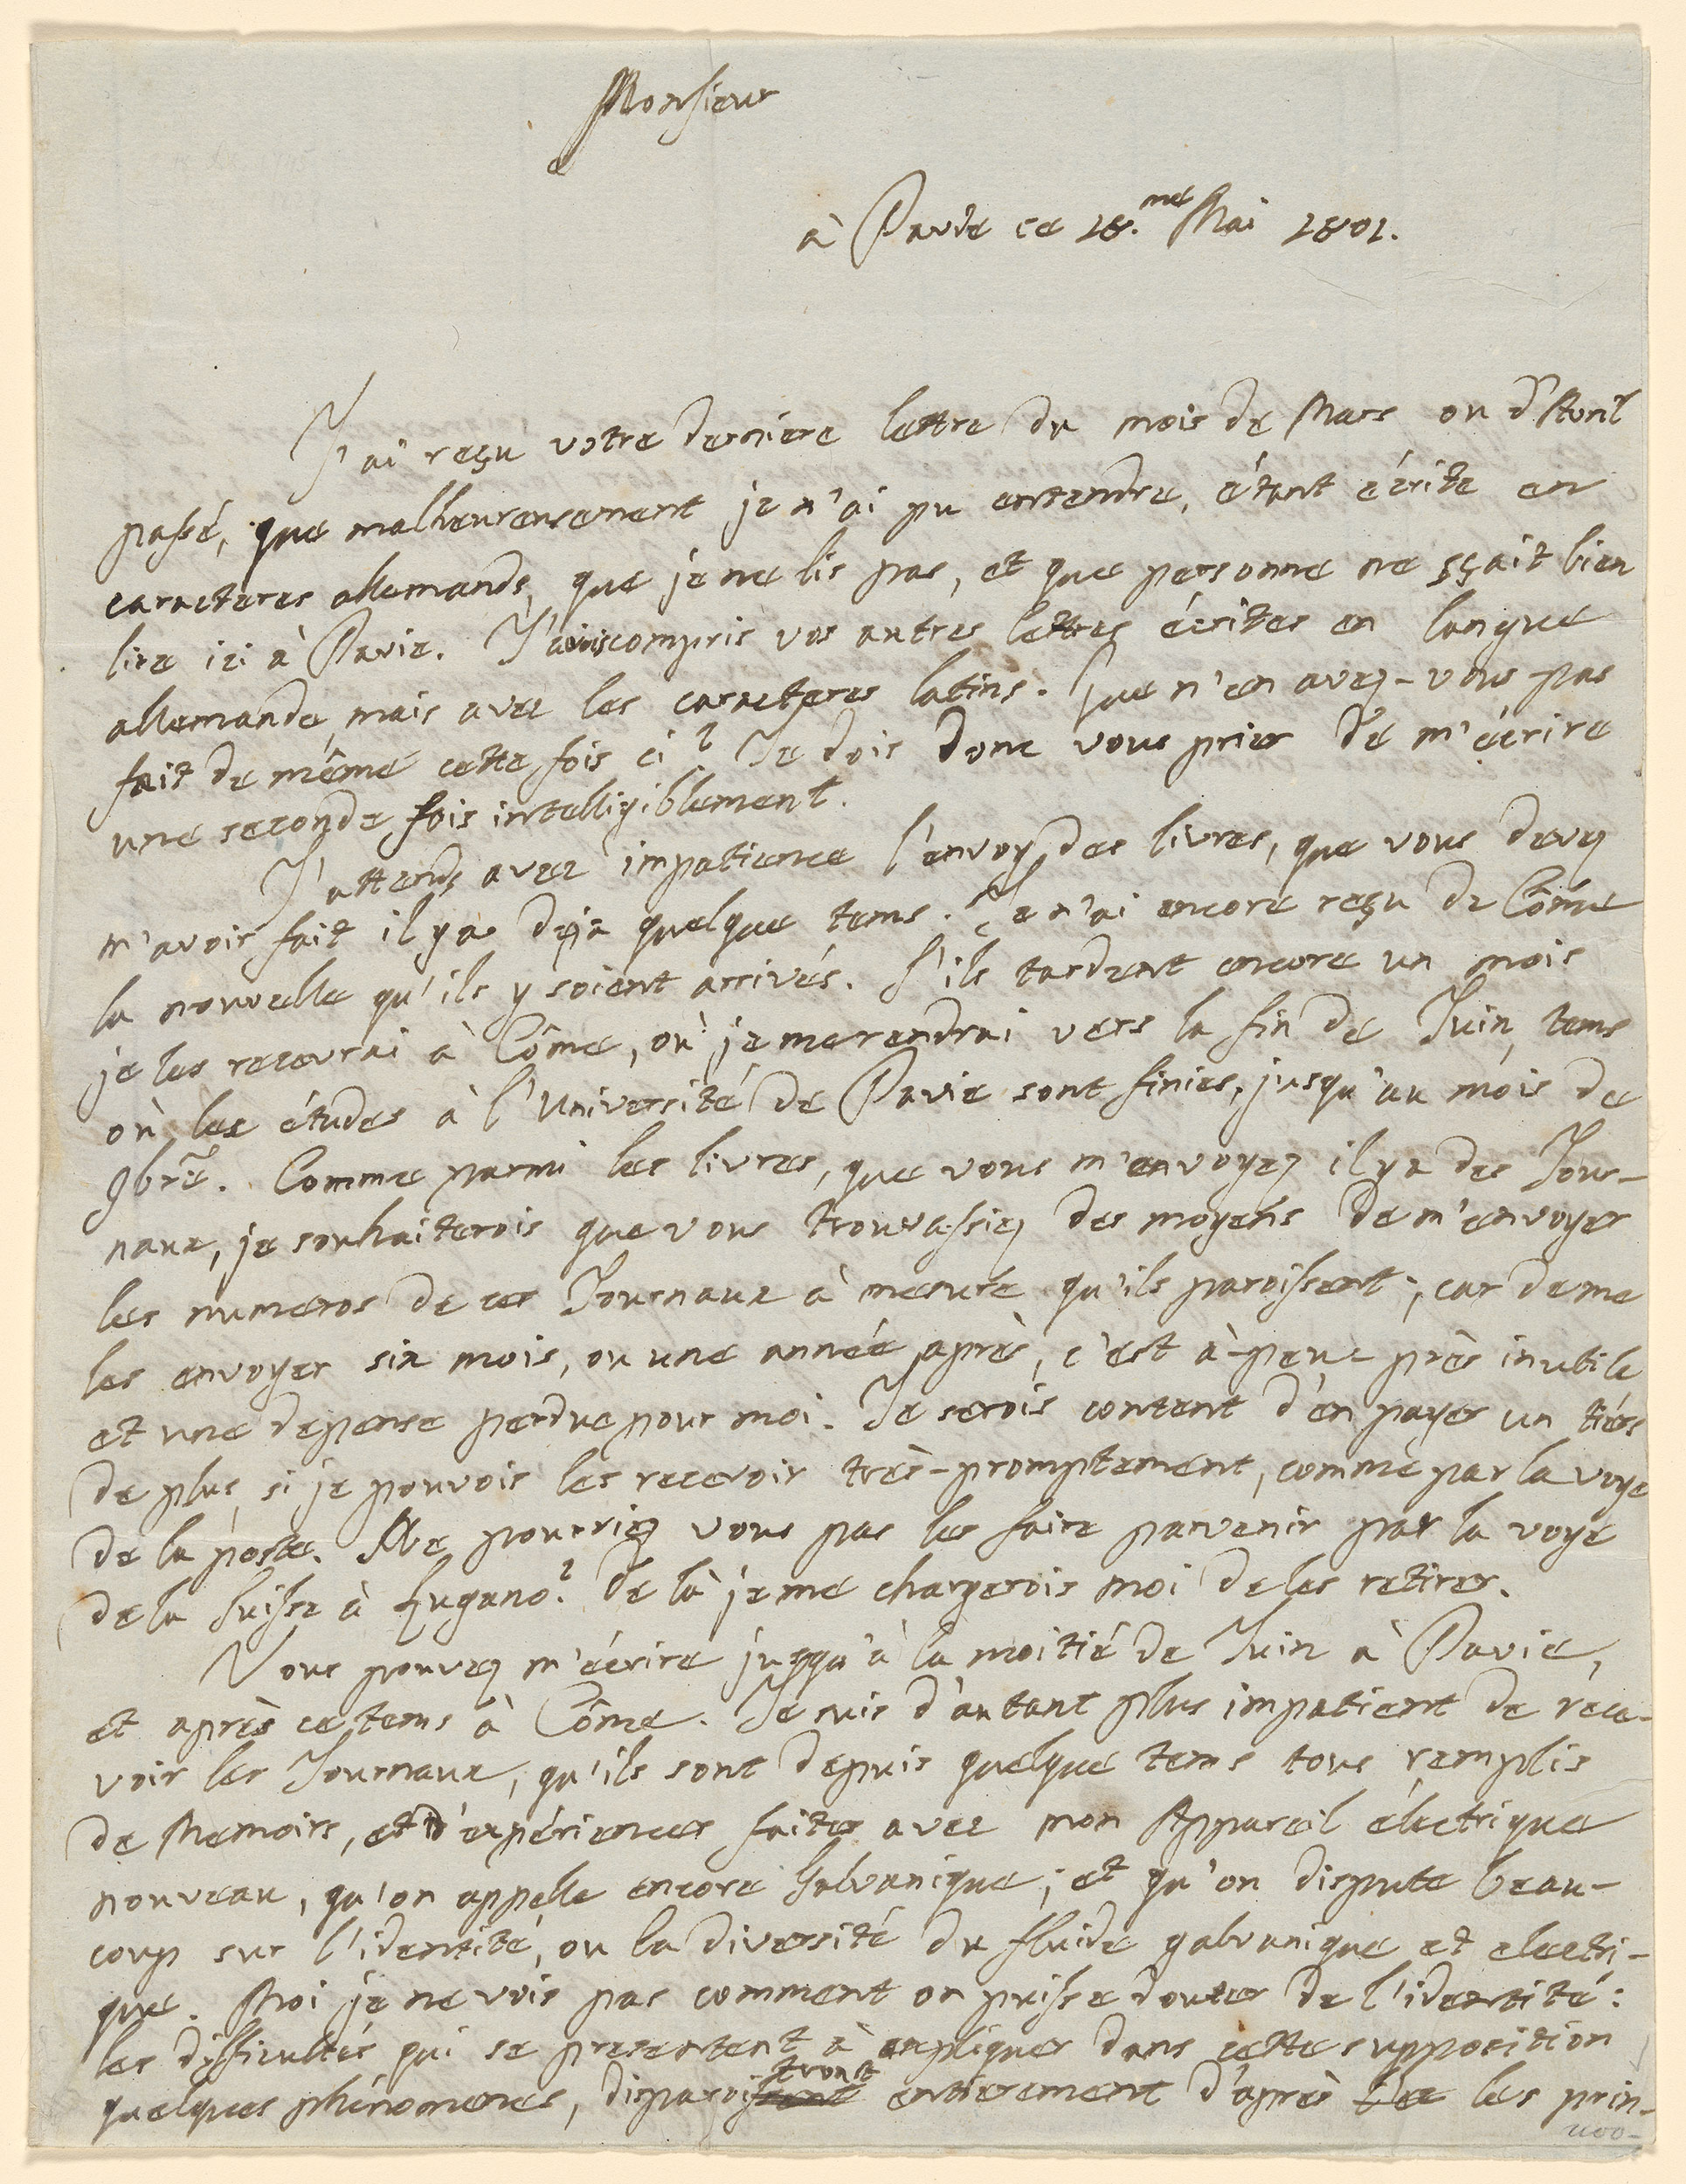 Monsieur
à Pavie ce 18.me Mai 1801.
J'ai reçu votre derniere lettre du mois de Mars ou d'Avril
passé, que malheureusement je n'ai pu entendre, étant écrite en
caracteres allemands, que je ne lis pas, et que personne ne sçait bien
lire ici à Pavie. J'avois compris vos autres lettres écrites en langue
allemande, mais avec les caracteres latins. Que n'en avez-vous pas
fait de même cette fois ci? Je dois donc vous prier de m'écrire
une seconde fois intelligiblement.
J'attends avec impatience l'envoy des livres, que vous devez
m'avoir fait il y a deja quelque tems. Je n'ai encore reçu de Côme
la nouvelle qu'ils y soient arrivés. S'ils tardent encore un mois
je les recevrai à Côme, où je me rendrai vers la fin de Juin, tems
où les études à l'Université de Pavie sont finies, jusqu'au mois de
9bre. Comme parmi les livres, que vous m'envoyez il y a des Jour-
naux, je souhaiterois que vous trouvassiez des moyens de m'envoyer
les numeros de ces Journaux à mesure qu'ils paroissent; car de me
les envoyer six mois, ou une année après, c'est à-peu-près inutile
et une depense perdue pour moi. Je serois content d'en payer un tiérs
de plus, si je pouvois les recevoir très-promptement, comme par la voye
de la poste. Ne pourriez vous pas les faire parvenir par la voye
de la Suisse à Lugano? De là je me chargerois moi de les retirer.
Vous pouvez m'écrire jusqu'à la moitié de Juin à Pavie,
et après ce tems à Côme. Je suis d'autant plus impatient de rece-
voir les Journaux, qu'ils sont depuis quelque tems tous remplis
de Memoirs, et d'expériences faites avec mon Appareil électrique
nouveau, qu'on appelle encore Galvanique; et qu'on dispute beau-
coup sur l'identité, ou la diversité du fluide galvanique et electri-
que. Moi je ne vois pas comment on puisse douter de l'identité:
les difficultés qui se presentent à expliquer dans cette supposition
quelques phénomenes, disparoitront entierement d'après les prin-